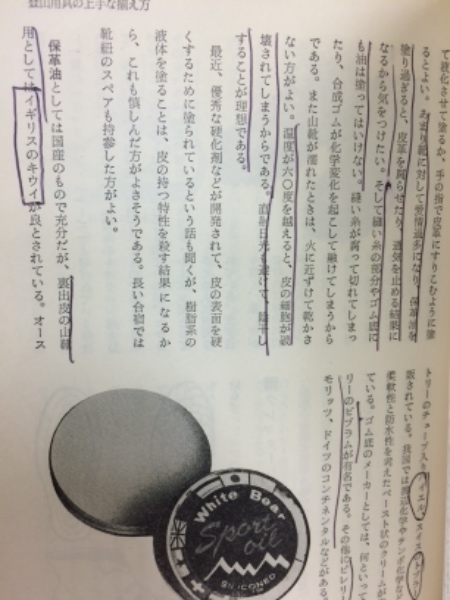 登山用具の上手な揃え方
て液化させて塗るか、手の指で皮革にすりこむように塗
るとよい。あまり靴に対して愛情過多になり、保革油を
塗り過ぎると、皮革を腐らせたり、通気を止める結果に
なるから気をつけたい。そして縫い糸の部分やゴム底に
も油は塗ってはいけない。縫い糸が腐って切れてしまっ
たり、合成ゴムが化学変化を起こして融けてしまうから
である。また山靴が濡れたときは、火に近ずけて乾かさ
ない方がよい。温度が六〇度を越えると、皮の細胞が破
壊されてしまうからである。直射日光も避けて、陰干し
することが理想である。
最近、優秀な硬化剤などが開発されて、皮の表面を硬
くするために塗られているという話も聞くが、樹脂系の
液体を塗ることは、皮の持つ特性を殺す結果になるか
ら、これも慎しんだ方がよさそうである。長い合宿では
靴紐のスペアも持参した方がよい。
保革油としては国産のもので充分だが、裏出皮の山靴
用としてはイギリスのキウイが良とされている。オース
トリーのチューブ入り
販されている。我国では渡辺化学やサンダ化学な
柔軟性と防水性を考えたペースト状のクリームが
ている。ゴム底のメーカーとしては、何といって
リーのビブラムが有名である。その他にピレリー
モリッツ、ドイツのコンチネンタルなどがある。
White Bear
Sport oil
SILICONED